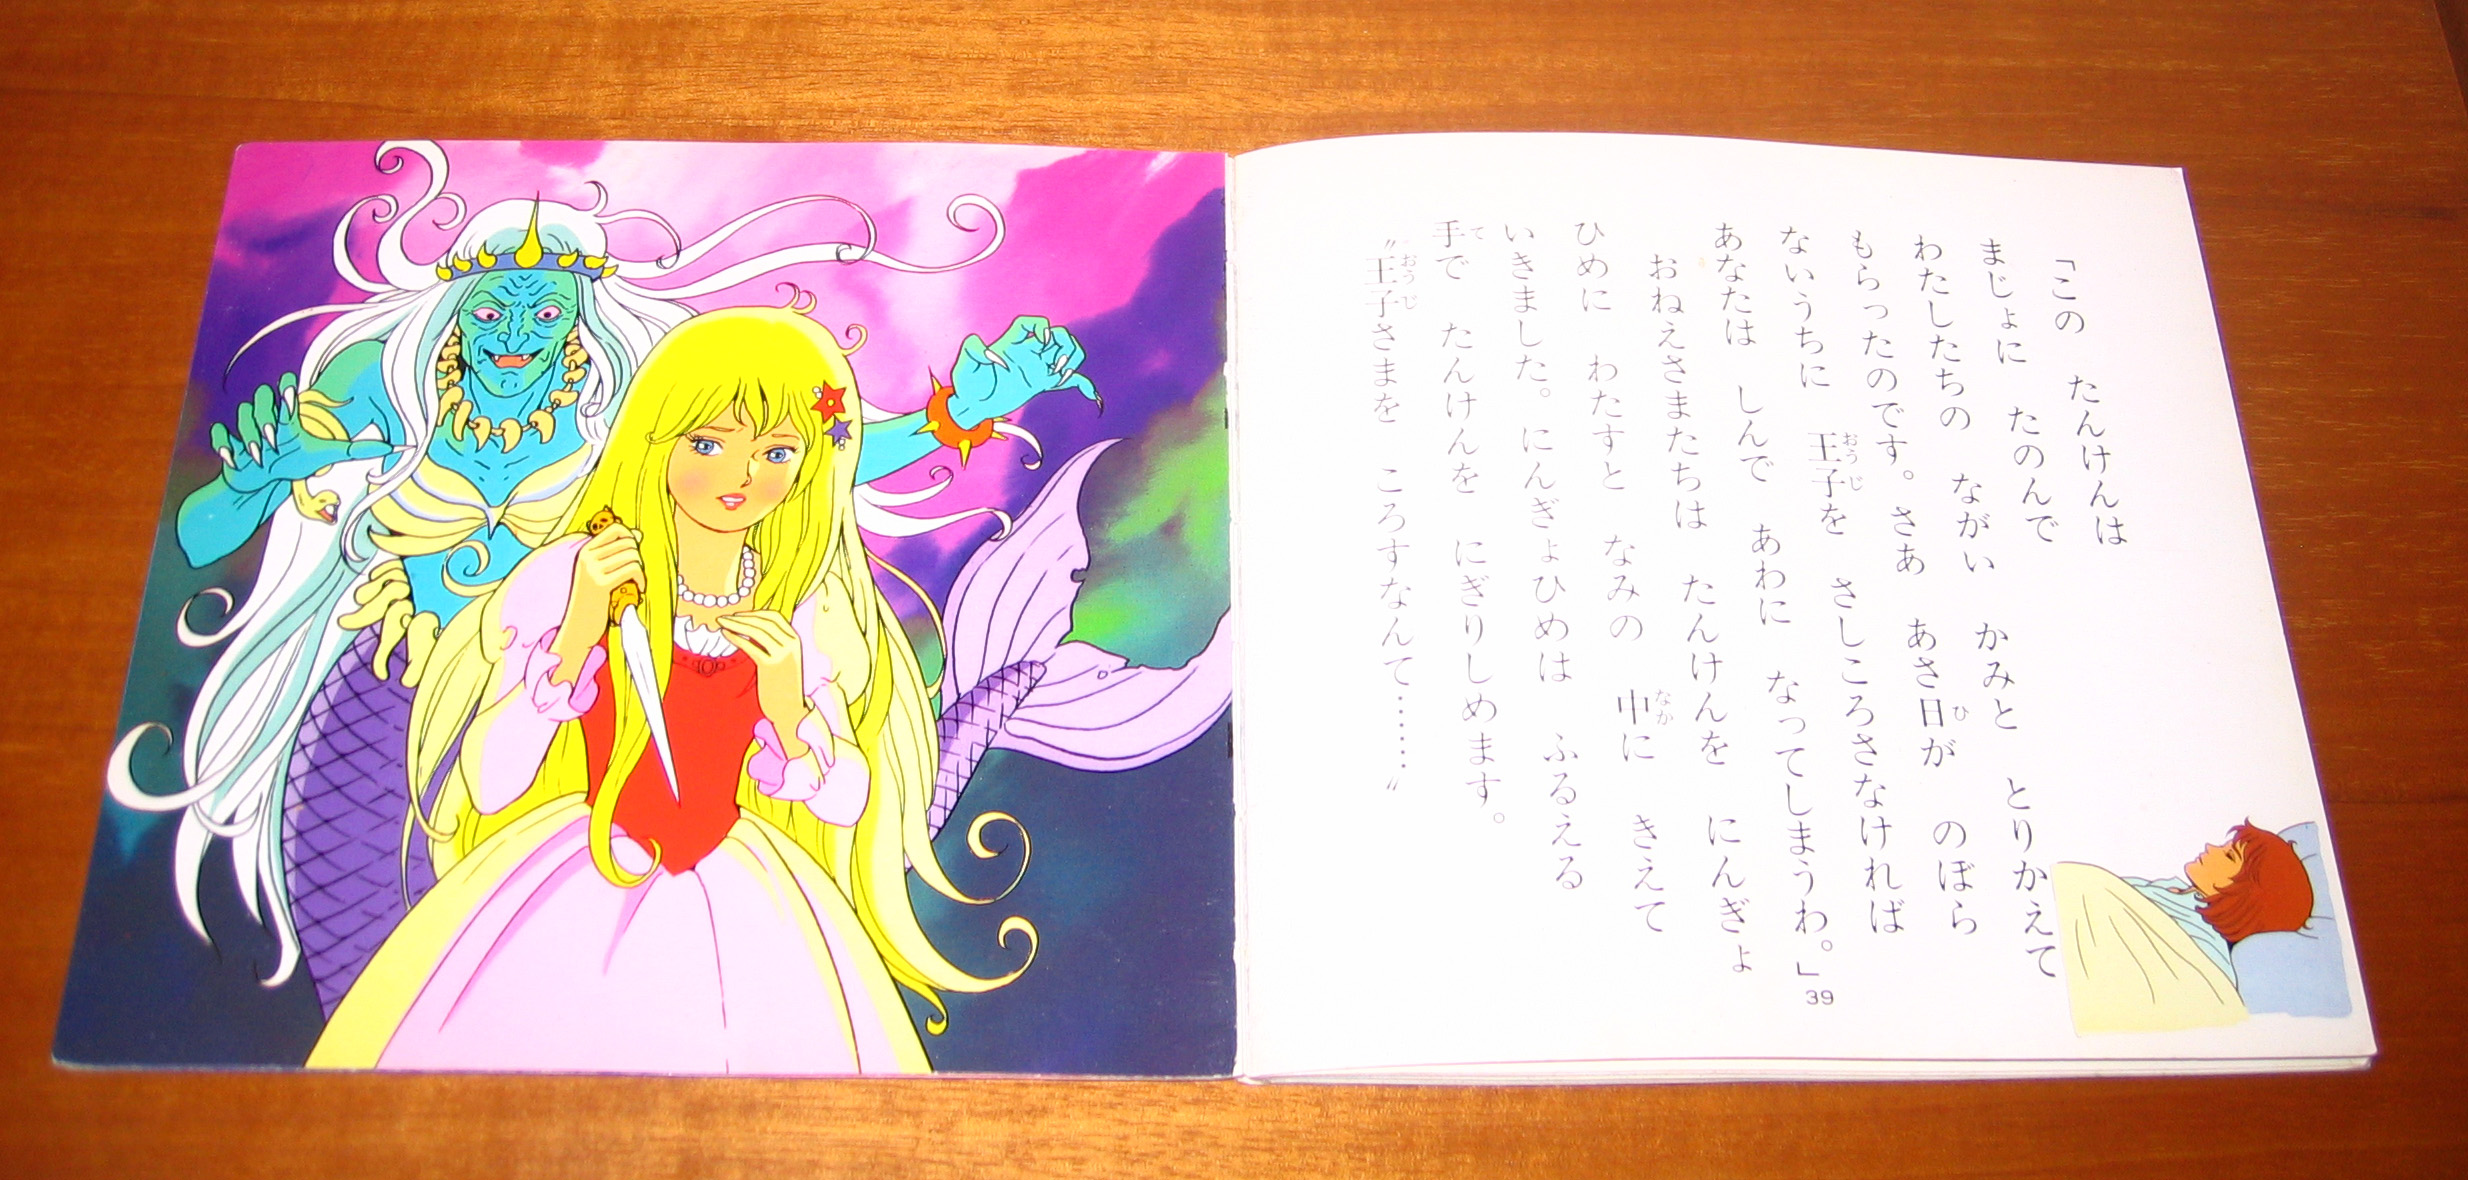 「この たんけんは
まじょに たのんで
わたしたちの ながい かみと とりかえて
もらったのです。さあ あさ日が のぼら
ないうちに 王子を さしころさなければ
あなたは しんで あわに なってしまうわ。」
おねえさまたちは たんけんを にんぎょ
ひめに わたすと なみの 中に きえて
いきました。にんぎょひめは ふるえる
手で たんけんを にぎりしめます。
〝王子さまを ころすなんて……〟
39